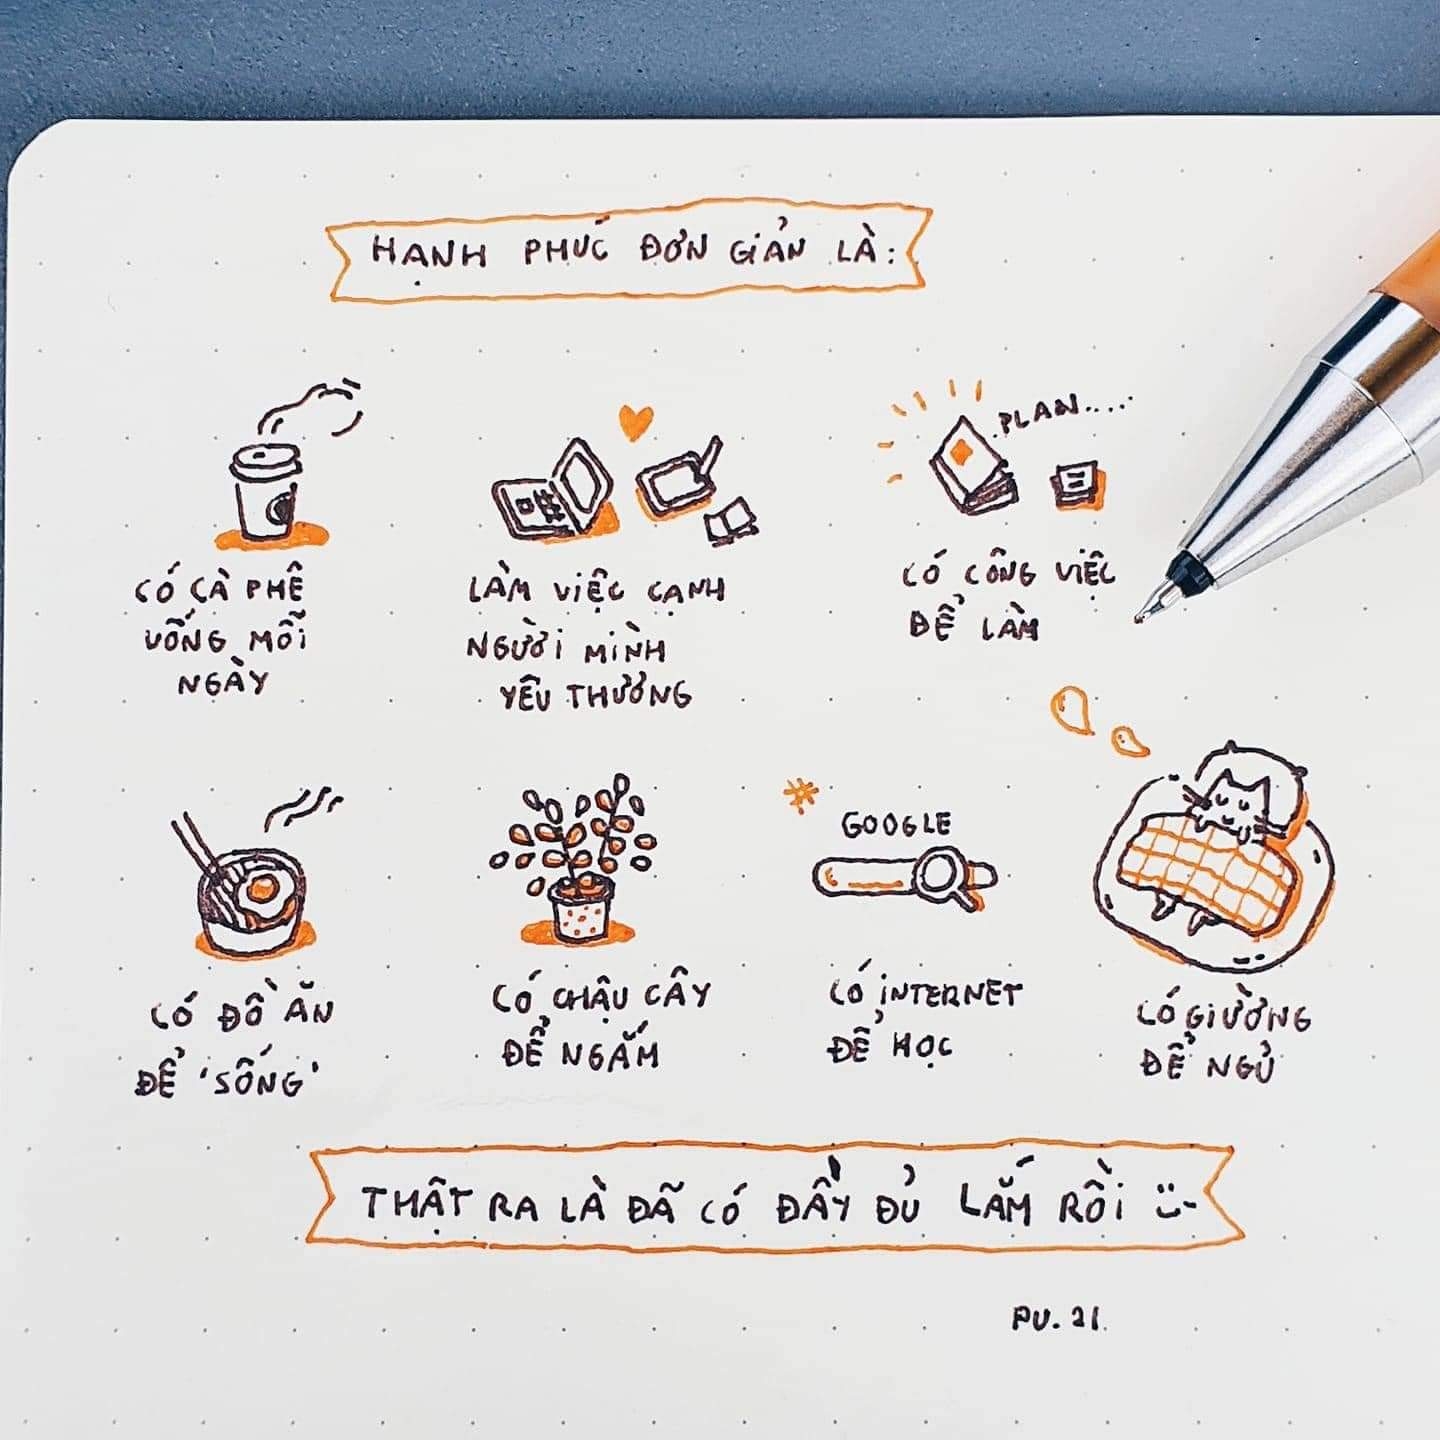 HẠNH PHÚC ĐƠN GIẢN LÀ:
CÓ CÀ PHÊ
UỐNG MỖI
NGÀY
LÀM VIỆC CẠNH
NGƯỜI MÌNH
YÊU THƯƠNG
PLAN.....
CÓ CÔNG VIỆC
ĐỂ LÀM
CÓ ĐỒ ĂN
ĐỂ 'SỐNG'
CÓ CHẬU CÂY
ĐỂ NGẮM
GOOGLE
CÓ INTERNET
ĐỂ HỌC
CÓ GIƯỜNG
ĐỂ NGỦ
THẬT RA LÀ ĐÃ CÓ ĐẦY ĐỦ LẮM RỒI
PU.21.